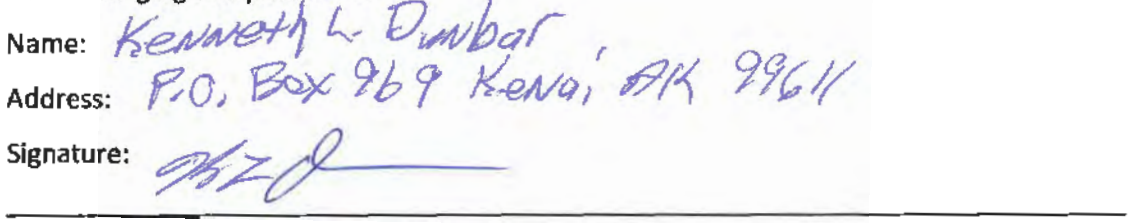 Name: Kenneth L. Dunbar
Address: P.O. Box 969 Kenai, AK 99611
Signature: